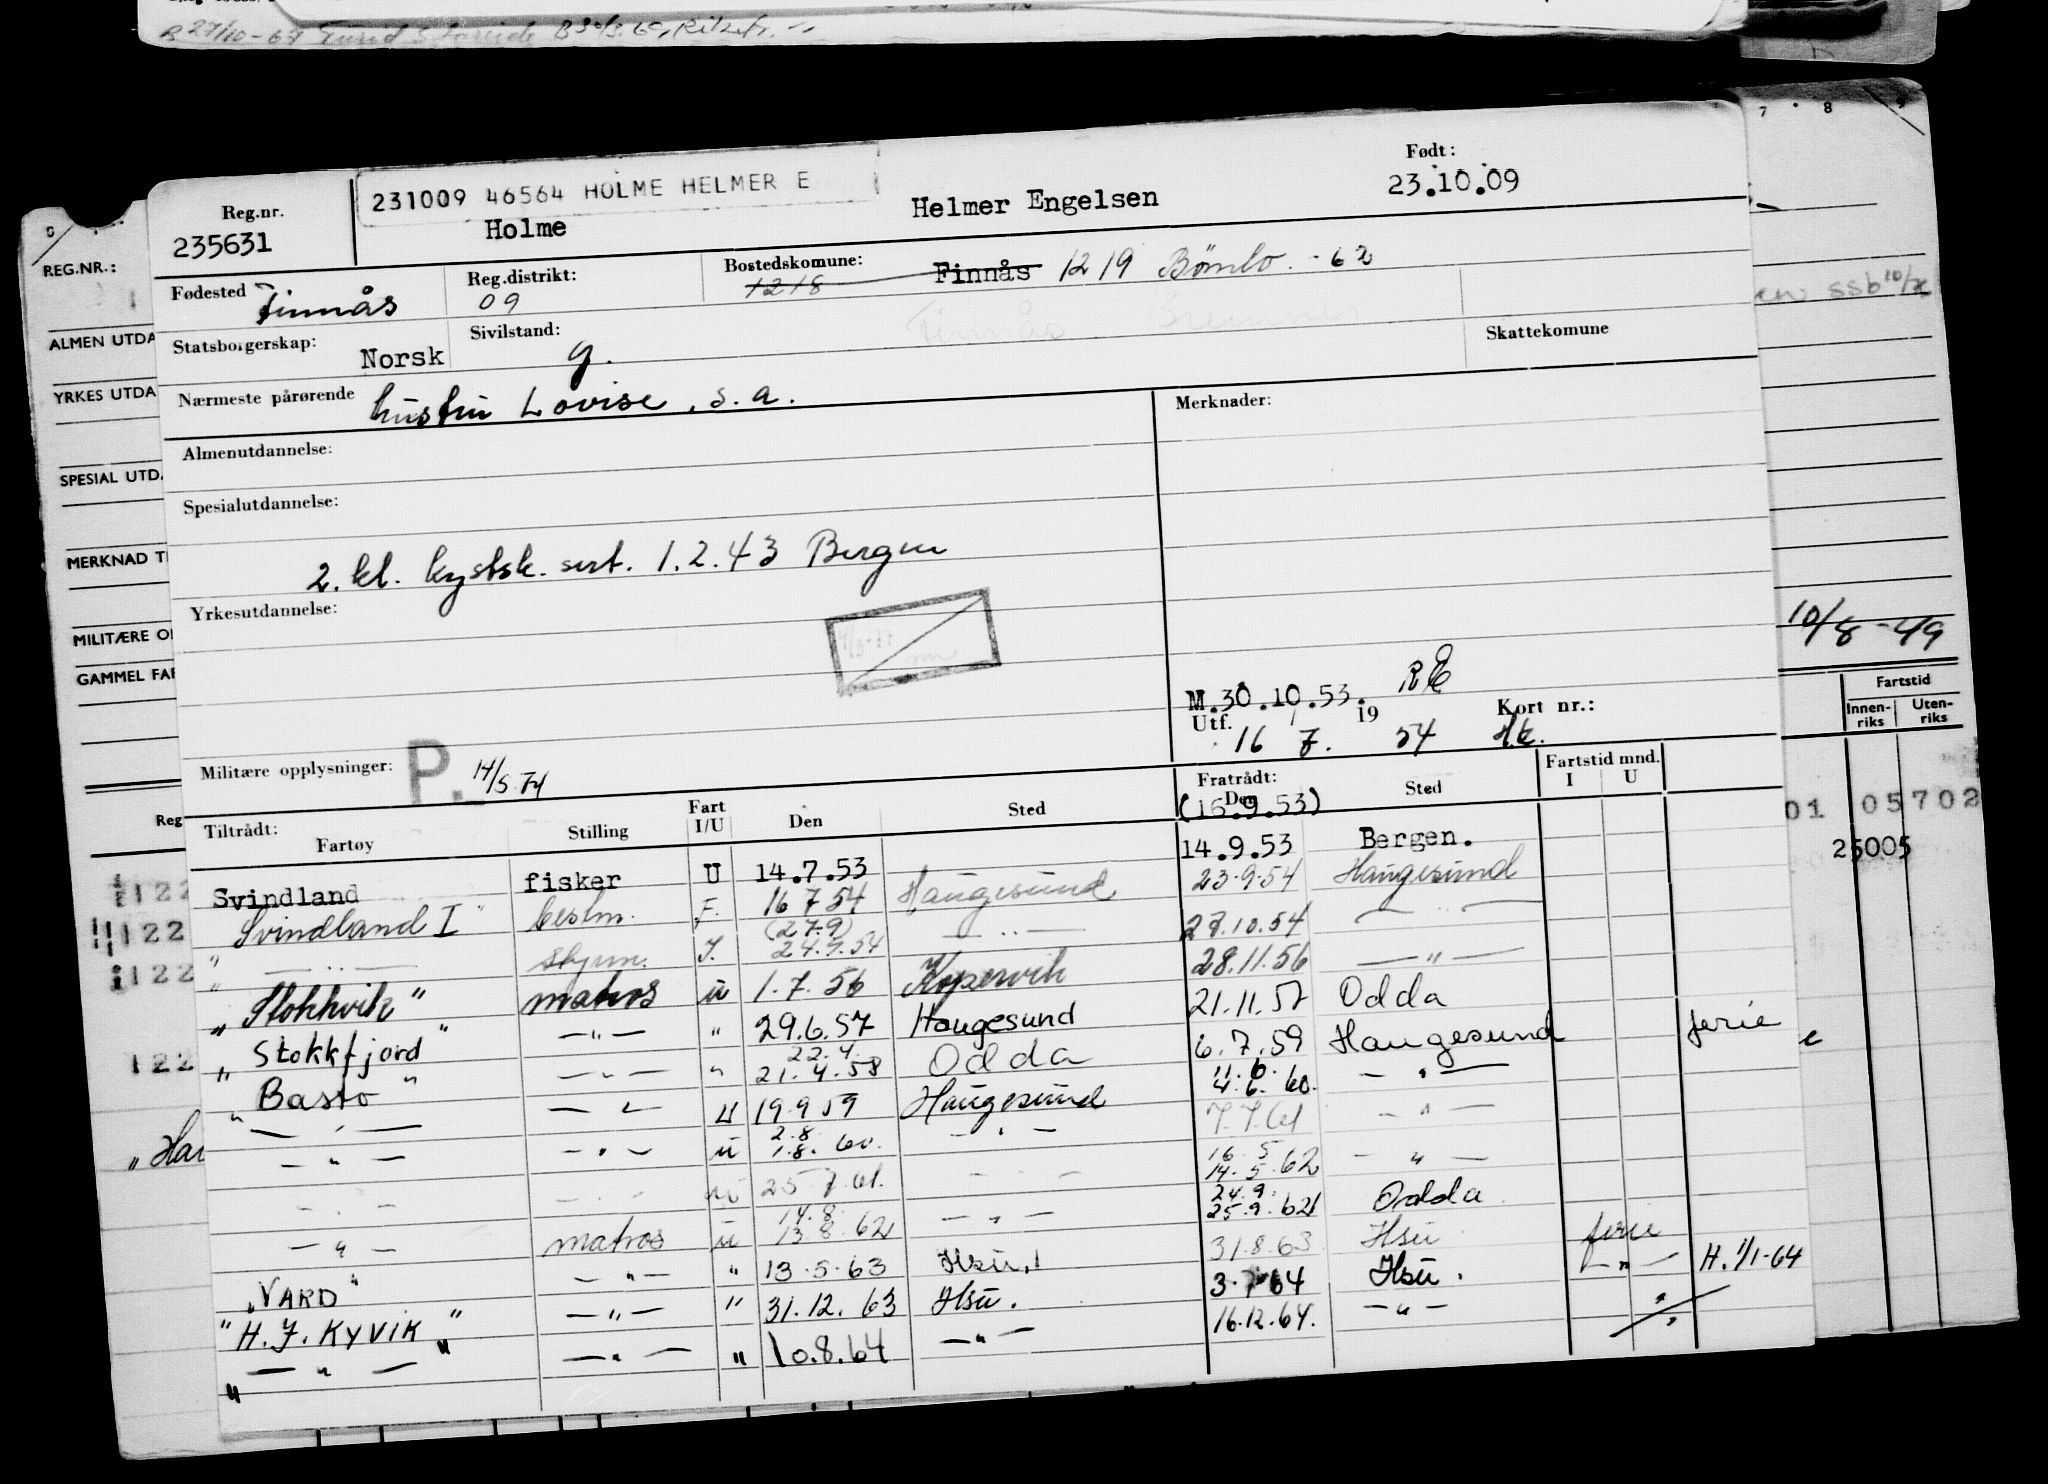 B 27/10-67
REG.NR.:
ALMEN UTDA
YRKES UTDA
SPESIAL UTDA
MERKNAD T
MILITÆRE O
GAMMEL FAR
Reg
7 8 9
ssb 10/
10/8-49
Fartstid
Innen-riks Uten-riks
01 05702
25005
122
122
122
122
"Har
Født:
231009 46564 HOLME HELMER E
Helmer Engelsen 23.10.09
Reg.nr.
235631 Holme
Fødested Finnås Reg.distrikt: 09 Bostedskomune: 1218 Finnås 1219 Bömlo -62
Statsborgerskap: Norsk Sivilstand: g. Skattekomune
Nærmeste pårørende hustru Lovise, s.a. Merknader:
Almenutdannelse:
Spesialutdannelse:
2. kl. kystsk. sert. 1.2.43 Bergen
Yrkesutdannelse:
M.30.10.53. RE
Utf. 16 7. 19 54 Kort nr.: Hk.
Militære opplysninger: P. 14/5.74
Tiltrådt: Fratrådt: Fartstid mnd.
Fartøy Stilling Fart I/U Den Sted Den Sted I U
(16.9.53)
Svindland fisker U 14.7.53 14.9.53 Bergen.
" Svindland I" bestm. F. 16 7 54 Haugesund 23.9.54 Haugesund
" — " — skjem. I. (27.9) 24.9.54 — " — 28.10.54 — " —
" Stokkvik" matros u 1.7.56 Kopervik 28.11.56 — " —
" Stokkfjord" — " — " 29.6.57 Haugesund 21.11.57 Odda
" Basto" — " — " 22.4. 21.4.58 Odda 6.7.59 Haugesund ferie
— " — — " — U 19.9.59 Haugesund 11.6. 4.6.60. — " —
— " — — " — u 2.8. 1.8.60. — " — 7.7.61 — " —
— " — — " — u 25.7.61. — " — 16.5 14.5.62 — " —
— " — matros u 14.8. 13.8.62 — " — 24.9. 25.9.62 Odda
"VARD" — " — " 13.5.63 Hsu. 31.8.63 Hsu ferie
"H. J. KYVIK" — " — " 31.12.63 Hsu. 3.7.64 Hsu. — " — H. 1/1-64
" — " — " — " — " 10.8.64 — " — 16.12.64. — " —